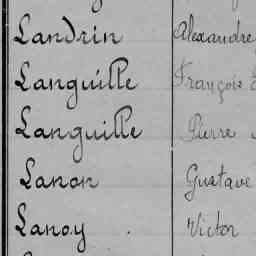 Landrin Alexandre
Languille François
Languille Pierre
Lanon Gustave
Lanoy Victor